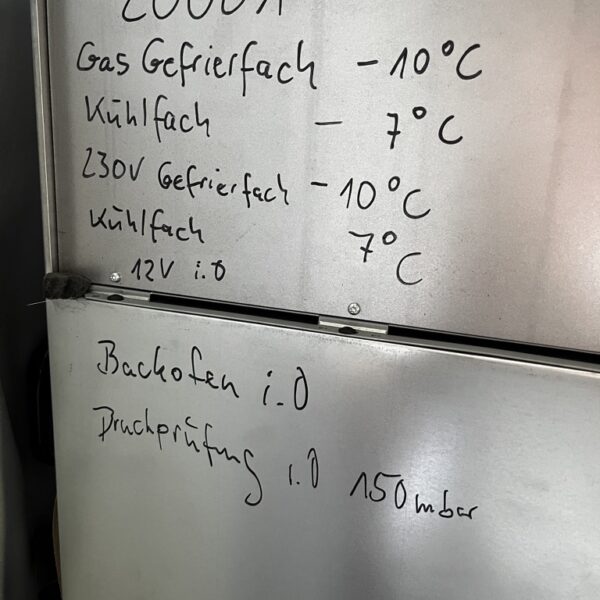 Gas Gefrierfach - 10°C
Kühlfach - 7°C
230V Gefrierfach - 10°C
Kühlfach 7°C
12V i.O
Backofen i.O
Druckprüfung i.O 150mbar